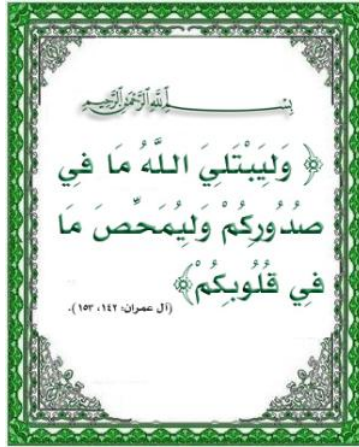 بسم الله الرحمن الرحيم
﴿ وَلِيَبْتَلِيَ اللَّهُ مَا فِي
صُدُورِكُمْ وَلِيُمَحِّصَ مَا
فِي قُلُوبِكُمْ﴾
(آل عمران: ١٤٢، ١٥٣).